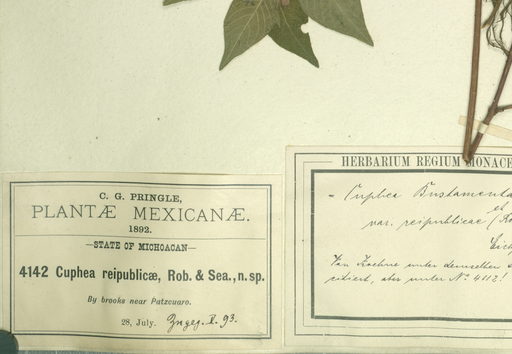 C. G. PRINGLE,
PLANTÆ MEXICANÆ.
1892.
—STATE OF MICHOACAN—
4142 Cuphea reipublicæ, Rob. & Sea., n. sp.
By brooks near Patzcuaro.
28, July. Zugeg. X. 93.
HERBARIUM REGIUM MONACE
= Cuphea Bustamenta
var. reipublicae
Von Koehne unter demselben
citiert, aber unter No. 4112!